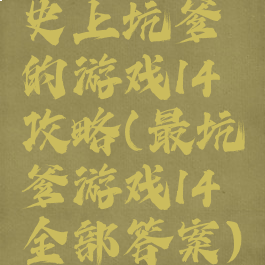 史上坑爹
的游戏14
攻略(最坑
爹游戏14
全部答案)